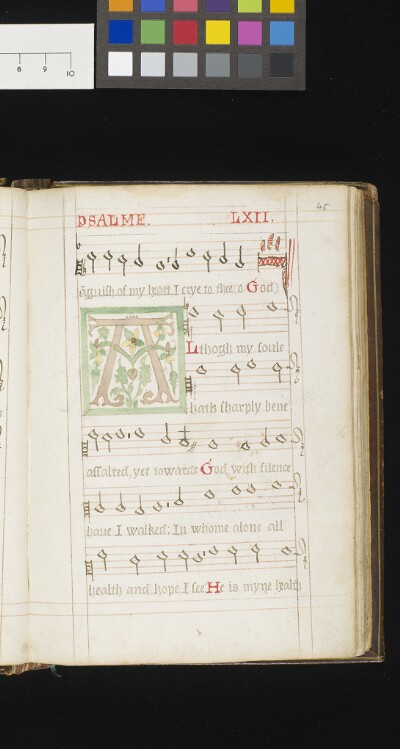 8 9 10
45
PSALME. LXII.
anguish of my heart, I crye to thee o God
ALthogh my soule
hath sharply bene
assalted, yet towards God with silence
haue I walked: In whome alone all
health and hope I see He is myne health